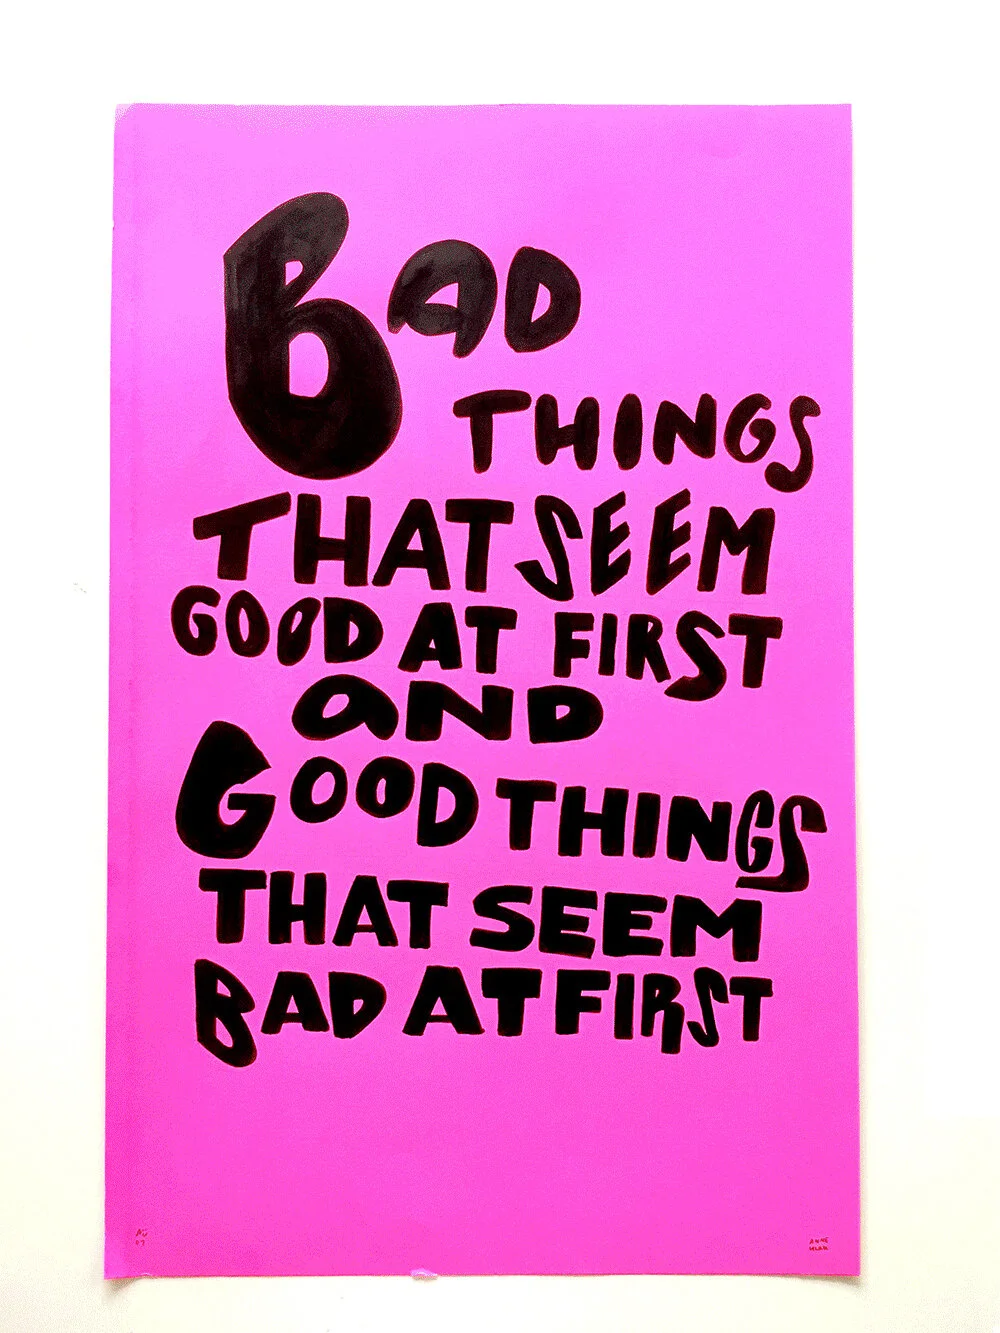 BAD
THINGS
THAT SEEM
GOOD AT FIRST
aND
GOOD THINGS
THAT SEEM
BAD AT FIRST
ANNE